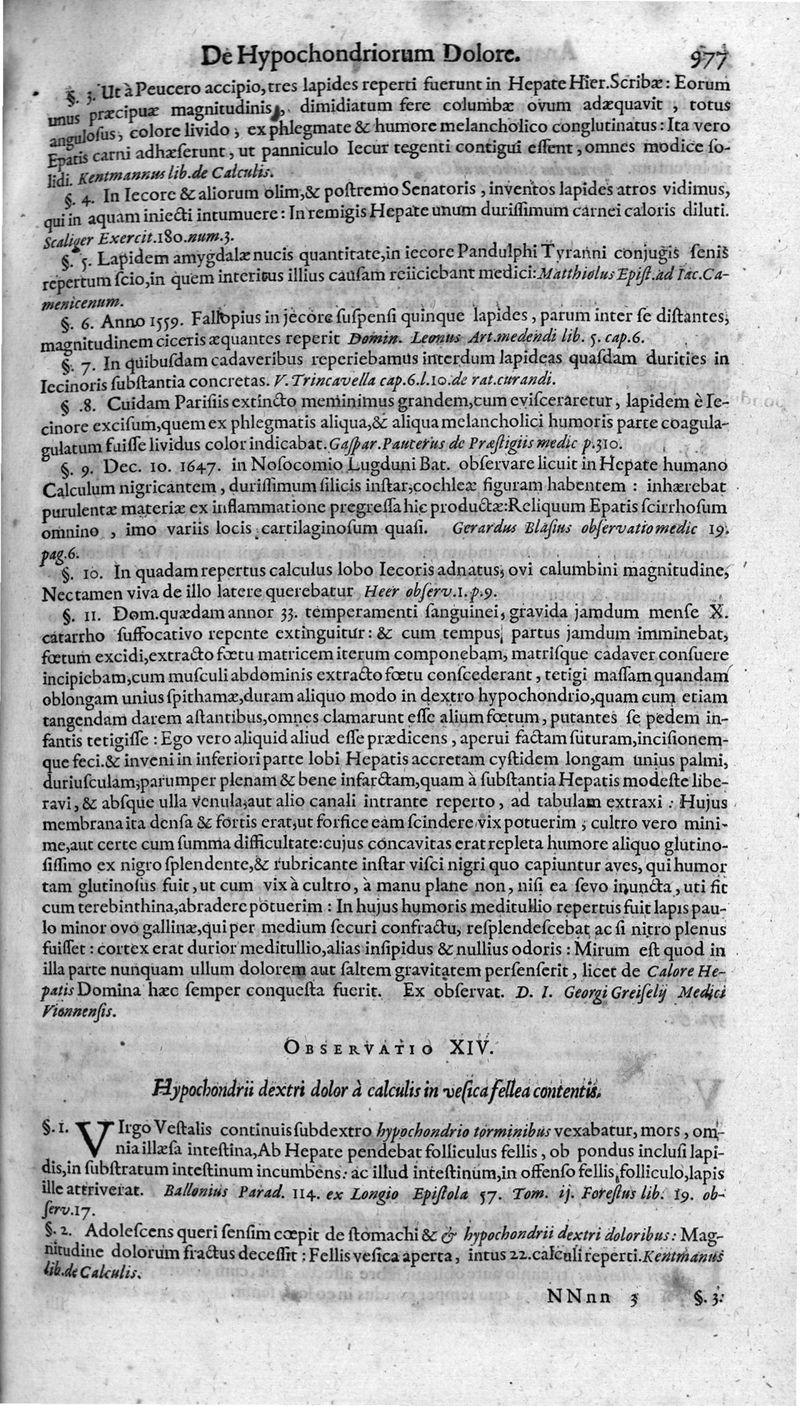 De Hypochondriorum Dolore. 977
§. 3. Ut à Peucero accipio, tres lapides reperti fuerunt in Hepate Hier. Scribæ: Eorum
unus præcipuæ magnitudinis, dimidiatum fere columbæ ovum adæquavit, totus
angulosus, colore livido, ex phlegmate & humore melancholico conglutinatus: Ita vero
Epatis carni adhæserunt, ut panniculo Iecur tegenti contigui essent, omnes modice so-
lidi. Kentmannus lib. de Calculis.
§. 4. In Iecore & aliorum olim, & postremo Senatoris, inventos lapides atros vidimus,
qui in aquam iniecti intumuere: In remigis Hepate unum durissimum carnei caloris diluti.
Scaliger Exercit. 180. num. 3.
§. 5. Lapidem amygdalæ nucis quantitate, in iecore Pandulphi Tyranni conjugis senis
repertum scio, in quem interitus illius causam reiiciebant medici: Matthiolus Epist. ad Iac. Ca-
menicenum.
§. 6. Anno 1559. Fallopius in jecore suspensi quinque lapides, parum inter se distantes,
magnitudinem ciceris æquantes reperit Domin. Leonus Art. medendi lib. 5. cap. 6.
§. 7. In quibusdam cadaveribus reperiebamus interdum lapideas quasdam durities in
Iecinoris substantia concretas. V. Trincavella cap. 6. l. 10. de rat. curandi.
§. 8. Cuidam Parisiis extincto meminimus grandem, cum evisceraretur, lapidem è Ie-
cinore excisum, quem ex phlegmatis aliqua, & aliqua melancholici humoris parte coagula-
gulatum fuisse lividus color indicabat. Gaspar. Pauterus de Præstigiis medic p. 310.
§. 9. Dec. 10. 1647. in Nosocomio Lugduni Bat. observare licuit in Hepate humano
Calculum nigricantem, durissimum silicis instar, cochleæ figuram habentem: inhærebat
purulentæ materiæ ex inflammatione pregressa hic productæ: Reliquum Epatis scirrhosum
omnino, imo variis locis cartilaginosum quasi. Gerardus Blasius observatio medic 19.
pag. 6.
§. 10. In quadam repertus calculus lobo Iecoris adnatus, ovi calumbini magnitudine,
Nec tamen viva de illo latere querebatur Heer observ. 1. p. 9.
§. 11. Dom. quædam annor 33. temperamenti sanguinei, gravida jamdum mense X.
catarrho suffocativo repente extinguitur: & cum tempus partus jamdum imminebat,
fœtum excidi, extracto fœtu matricem iterum componebam, matrisque cadaver consuere
incipiebam, cum musculi abdominis extracto fœtu conscederant, tetigi massam quandam
oblongam unius spithamæ, duram aliquo modo in dextro hypochondrio, quam cum etiam
tangendam darem astantibus, omnes clamarunt esse alium fœtum, putantes se pedem in-
fantis tetigisse: Ego vero aliquid aliud esse prædicens, aperui factam suturam, incisionem-
que feci. & inveni in inferiori parte lobi Hepatis accretam cystidem longam unius palmi,
duriusculam, parumper plenam & bene infarctam, quam à substantia Hepatis modeste libe-
ravi, & absque ulla venula, aut alio canali intrante reperto, ad tabulam extraxi: Hujus
membrana ita densa & fortis erat, ut forfice eam scindere vix potuerim, cultro vero mini-
me, aut certe cum summa difficultate: cujus concavitas erat repleta humore aliquo glutino-
sissimo ex nigro splendente, & rubricante instar visci nigri quo capiuntur aves, qui humor
tam glutinosus fuit, ut cum vix à cultro, à manu plane non, nisi ea sevo inuncta, uti fit
cum terebinthina, abradere potuerim: In hujus humoris meditullio repertus fuit lapis pau-
lo minor ovo gallinæ, qui per medium securi confractu, resplendescebat ac si nitro plenus
fuisset: cortex erat durior meditullio, alias insipidus & nullius odoris: Mirum est quod in
illa parte nunquam ullum dolorem aut saltem gravitatem persenserit, licet de Calore He-
patis Domina hæc semper conquesta fuerit. Ex observat. D. I. Georgi Greiselij Medici
Viennensis.
OBSERVATIO XIV.
Hypochondrii dextri dolor à calculis in vesica fellea contentis.
§. 1. VIrgo Vestalis continuis subdextro hypochondrio torminibus vexabatur, mors, om-
nia illæsa intestina, Ab Hepate pendebat folliculus fellis, ob pondus inclusi lapi-
dis, in substratum intestinum incumbens: ac illud intestinum, in offenso fellis folliculo, lapis
ille attriverat. Ballonius Parad. 114. ex Longio Epistola 57. Tom. ij. Forestus lib. 19. ob-
serv. 17.
§. 2. Adolescens queri sensim cœpit de stomachi & & hypochondrii dextri doloribus: Mag-
nitudine dolorum fractus decessit: Fellis vesica aperta, intus 22. calculi reperti. Kentmanus
lib. de Calculis.
NNnn 3 §. 3.